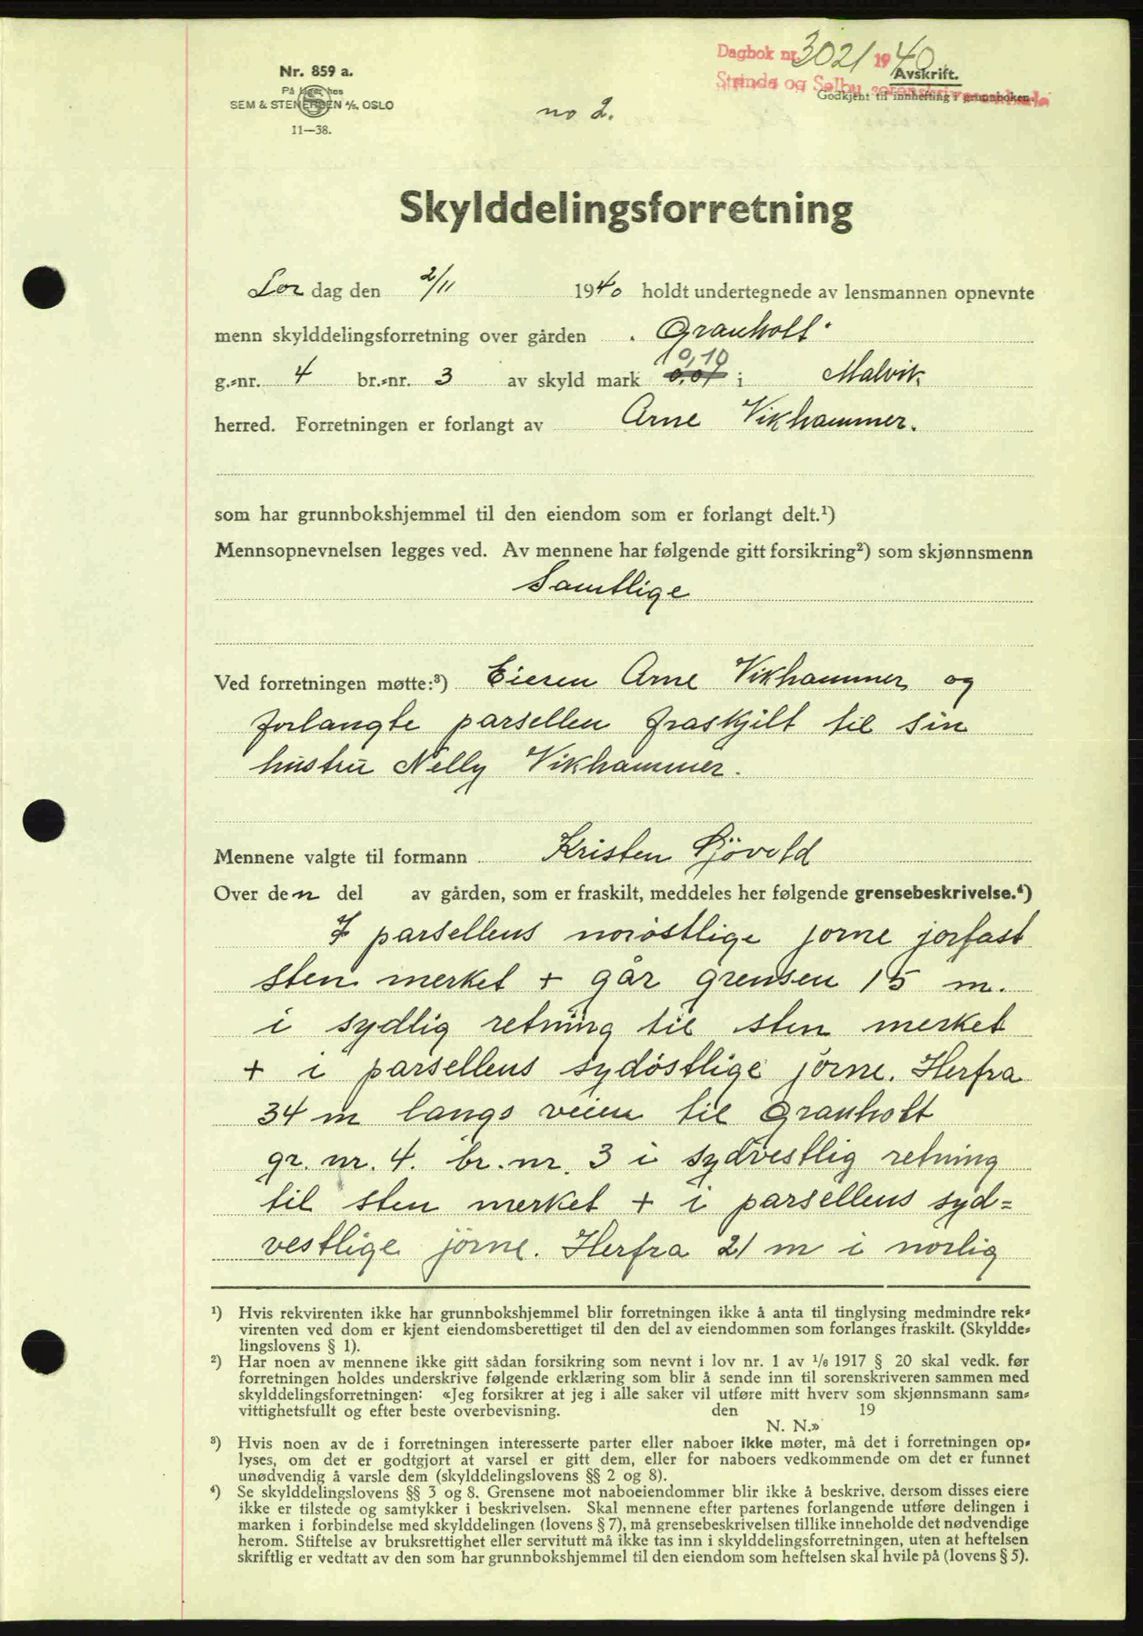 Dagbok nr. 3021 1940
Strinda og Selbu sorenskriverembede
Nr. 859 a.
På lager hos
SEM & STENERSEN A/S, OSLO
11—38.
Avskrift.
Godkjent til innhefting i grunnboken.
no 2.
Skylddelingsforretning
Lør dag den 2/11 1940 holdt undertegnede av lensmannen opnevnte
menn skylddelingsforretning over gården "Granholt"
g.-nr. 4 br.-nr. 3 av skyld mark 0,10 0,07 i Malvik
herred. Forretningen er forlangt av Arne Vikhammer.
som har grunnbokshjemmel til den eiendom som er forlangt delt.¹)
Mennsopnevnelsen legges ved. Av mennene har følgende gitt forsikring²) som skjønnsmenn
Samtlige
Ved forretningen møtte:³) Eieren Arne Vikhammer og
forlangte parsellen fraskjilt til sin
hustru Nelly Vikhammer.
Mennene valgte til formann Kristen Sjövold
Over den del av gården, som er fraskilt, meddeles her følgende grensebeskrivelse.⁴)
I parsellens norøstlige jørne jorfast
sten merket + går grensen 15 m.
i sydlig retning til sten merket
+ i parsellens sydöstlige jørne. Herfra
34 m langs veien til Granholt
gr. nr. 4. br. nr. 3 i sydvestlig retning
til sten merket + i parsellens syd=
vestlige jörne. Herfra 21 m i norlig
¹) Hvis rekvirenten ikke har grunnbokshjemmel blir forretningen ikke å anta til tinglysing medmindre rek-
virenten ved dom er kjent eiendomsberettiget til den del av eiendommen som forlanges fraskilt. (Skyldde-
lingslovens § 1).
²) Har noen av mennene ikke gitt sådan forsikring som nevnt i lov nr. 1 av 1/6 1917 § 20 skal vedk. før
forretningen holdes underskrive følgende erklæring som blir å sende inn til sorenskriveren sammen med
skylddelingsforretningen: «Jeg forsikrer at jeg i alle saker vil utføre mitt hverv som skjønnsmann sam-
vittighetsfullt og efter beste overbevisning. den 19
N. N.»
³) Hvis noen av de i forretningen interesserte parter eller naboer ikke møter, må det i forretningen op-
lyses, om det er godtgjort at varsel er gitt dem, eller for naboers vedkommende om det er funnet
unødvendig å varsle dem (skylddelingslovens §§ 2 og 8).
⁴) Se skylddelingslovens §§ 3 og 8. Grensene mot naboeiendommer blir ikke å beskrive, dersom disses eiere
ikke er tilstede og samtykker i beskrivelsen. Skal mennene efter partenes forlangende utføre delingen i
marken i forbindelse med skylddelingen (lovens § 7), må grensebeskrivelsen tillike inneholde det nødvendige
herom. Stiftelse av bruksrettighet eller servitutt må ikke tas inn i skylddelingsforretningen, uten at heftelsen
skriftlig er vedtatt av den som har grunnbokshjemmel til den eiendom som heftelsen skal hvile på (lovens § 5).